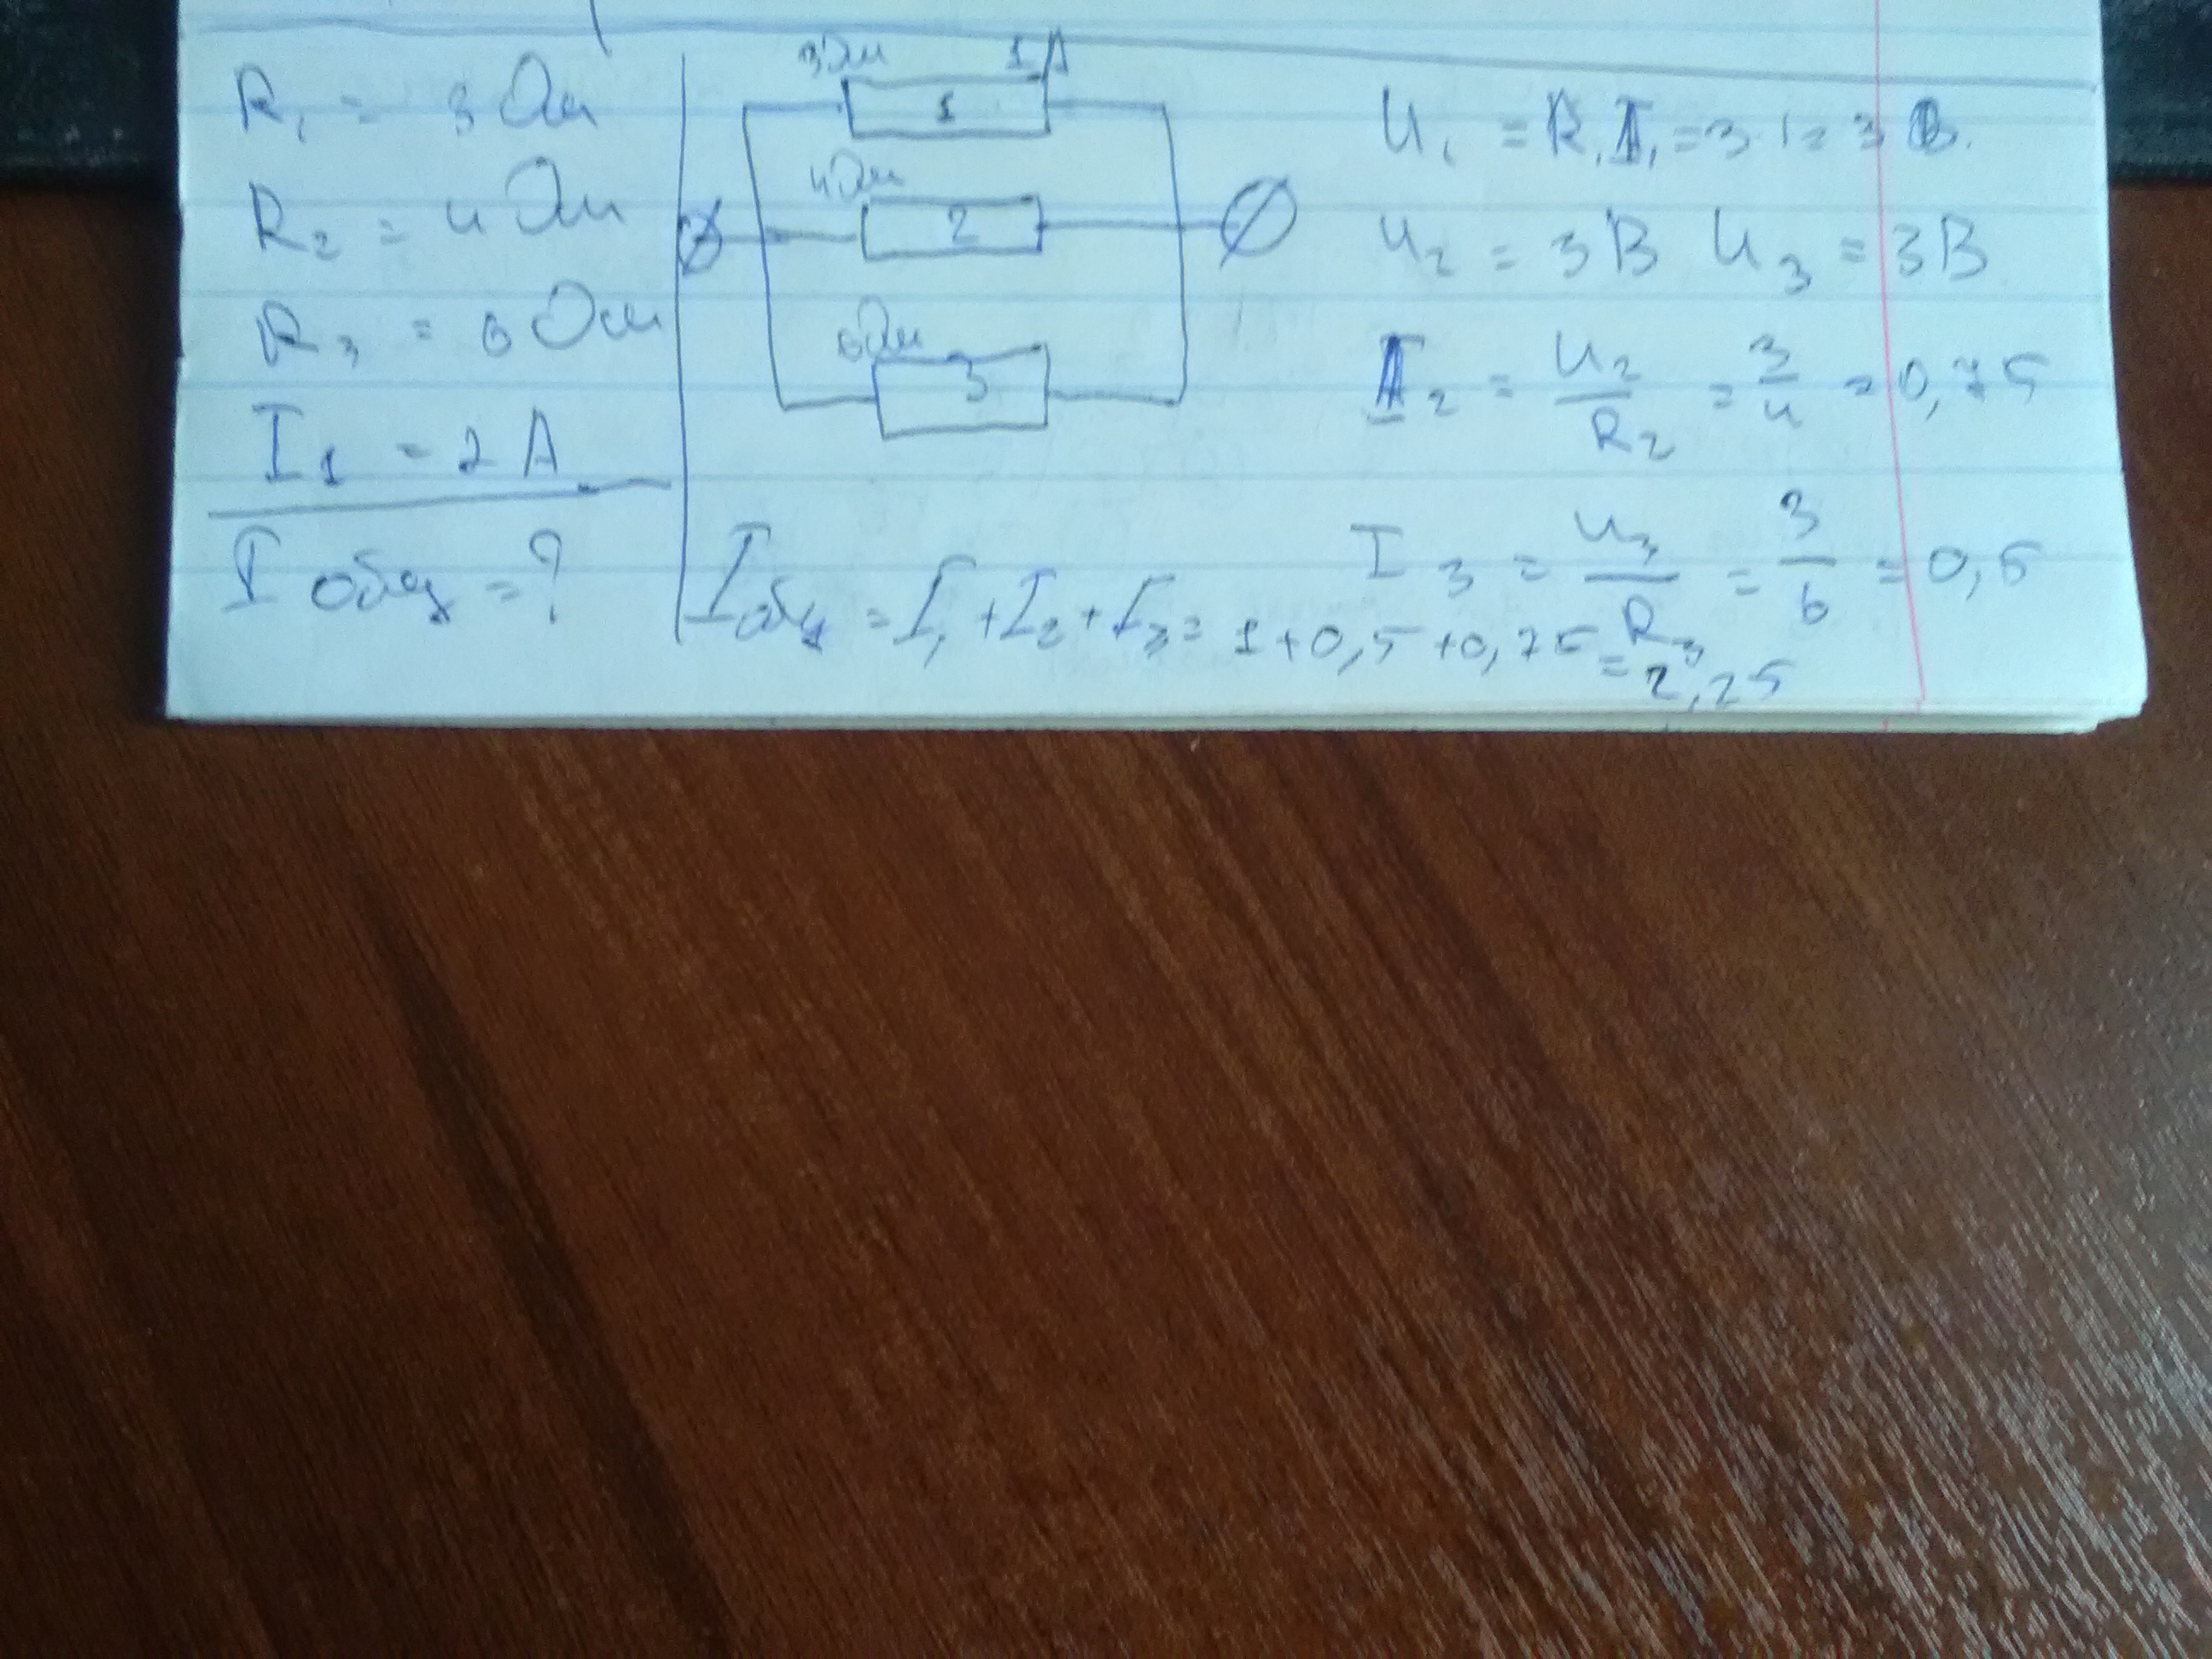 R₁ = 3 Ом
R₂ = 4 Ом
R₃ = 6 Ом
I₁ = 2 А
I общ = ?
3 Ом 1 А
1
4 Ом
2
6 Ом
3
U₁ = R₁I₁ = 3·1 = 3 В.
U₂ = 3 В U₃ = 3 В
I₂ = U₂/R₂ = 3/4 = 0,75
I₃ = U₃/R₃ = 3/6 = 0,5
I общ = I₁ + I₂ + I₃ = 1 + 0,5 + 0,75 =
= 2,25